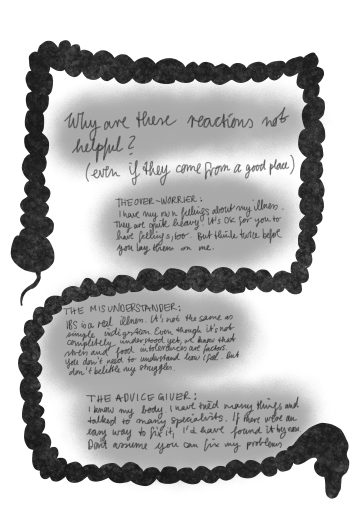 Why are these reactions not
helpful?
(even if they come from a good place)
THE OVER-WORRIER:
I have my own feelings about my illness.
They are quite heavy. It's OK for you to
have feelings, too. But think twice before
you lay them on me.
THE MISUNDERSTANDER:
IBS is a real illness. It's not the same as
simple indigestion. Even though it's not
completely understood yet, we know that
stress and food intolerances are factors.
You don't need to understand how I feel. But
don't belittle my struggles.
THE ADVICE GIVER:
I know my body. I have tried many things and
talked to many specialists. If there were an
easy way to fix it, I'd have found it by now.
Don't assume you can fix my problems